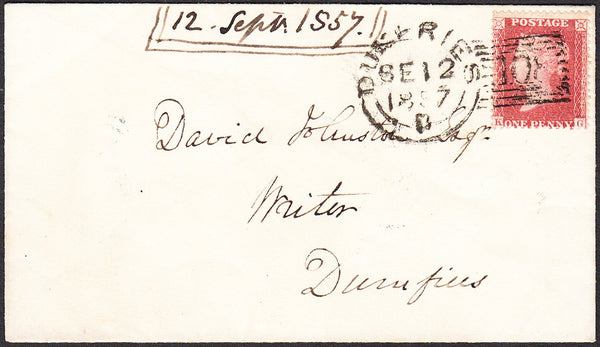 12. Septr. 1857.
DUMFRIES
SE 12
1857
B
108
POSTAGE
ONE PENNY
K G
David Johnston Esqr.
Writer
Dumfries